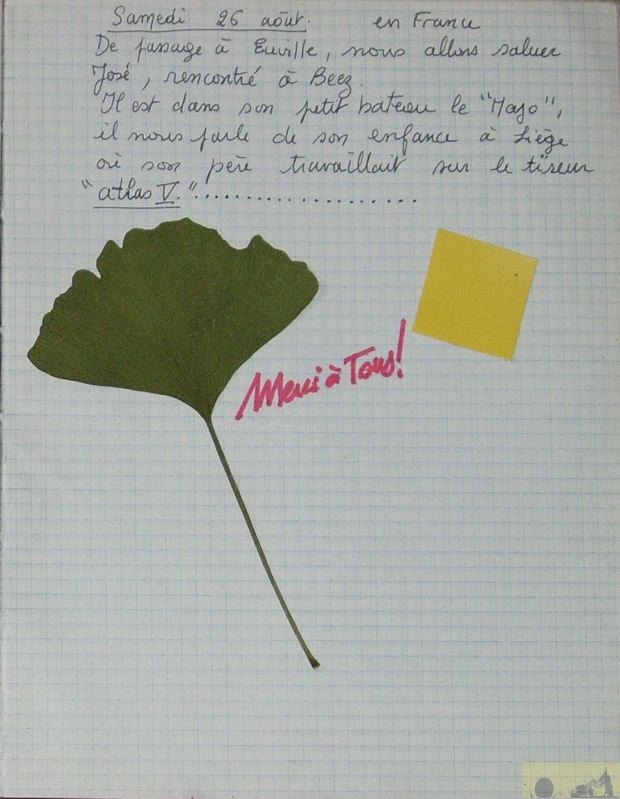 Samedi 26 août. en France
De passage à Euville, nous allons saluer
José, rencontré à Beez.
Il est dans son petit bateau le "Majo",
il nous parle de son enfance à Liège
où son père travaillait sur le tireur
"atlas V."....................
Merci à Tous!